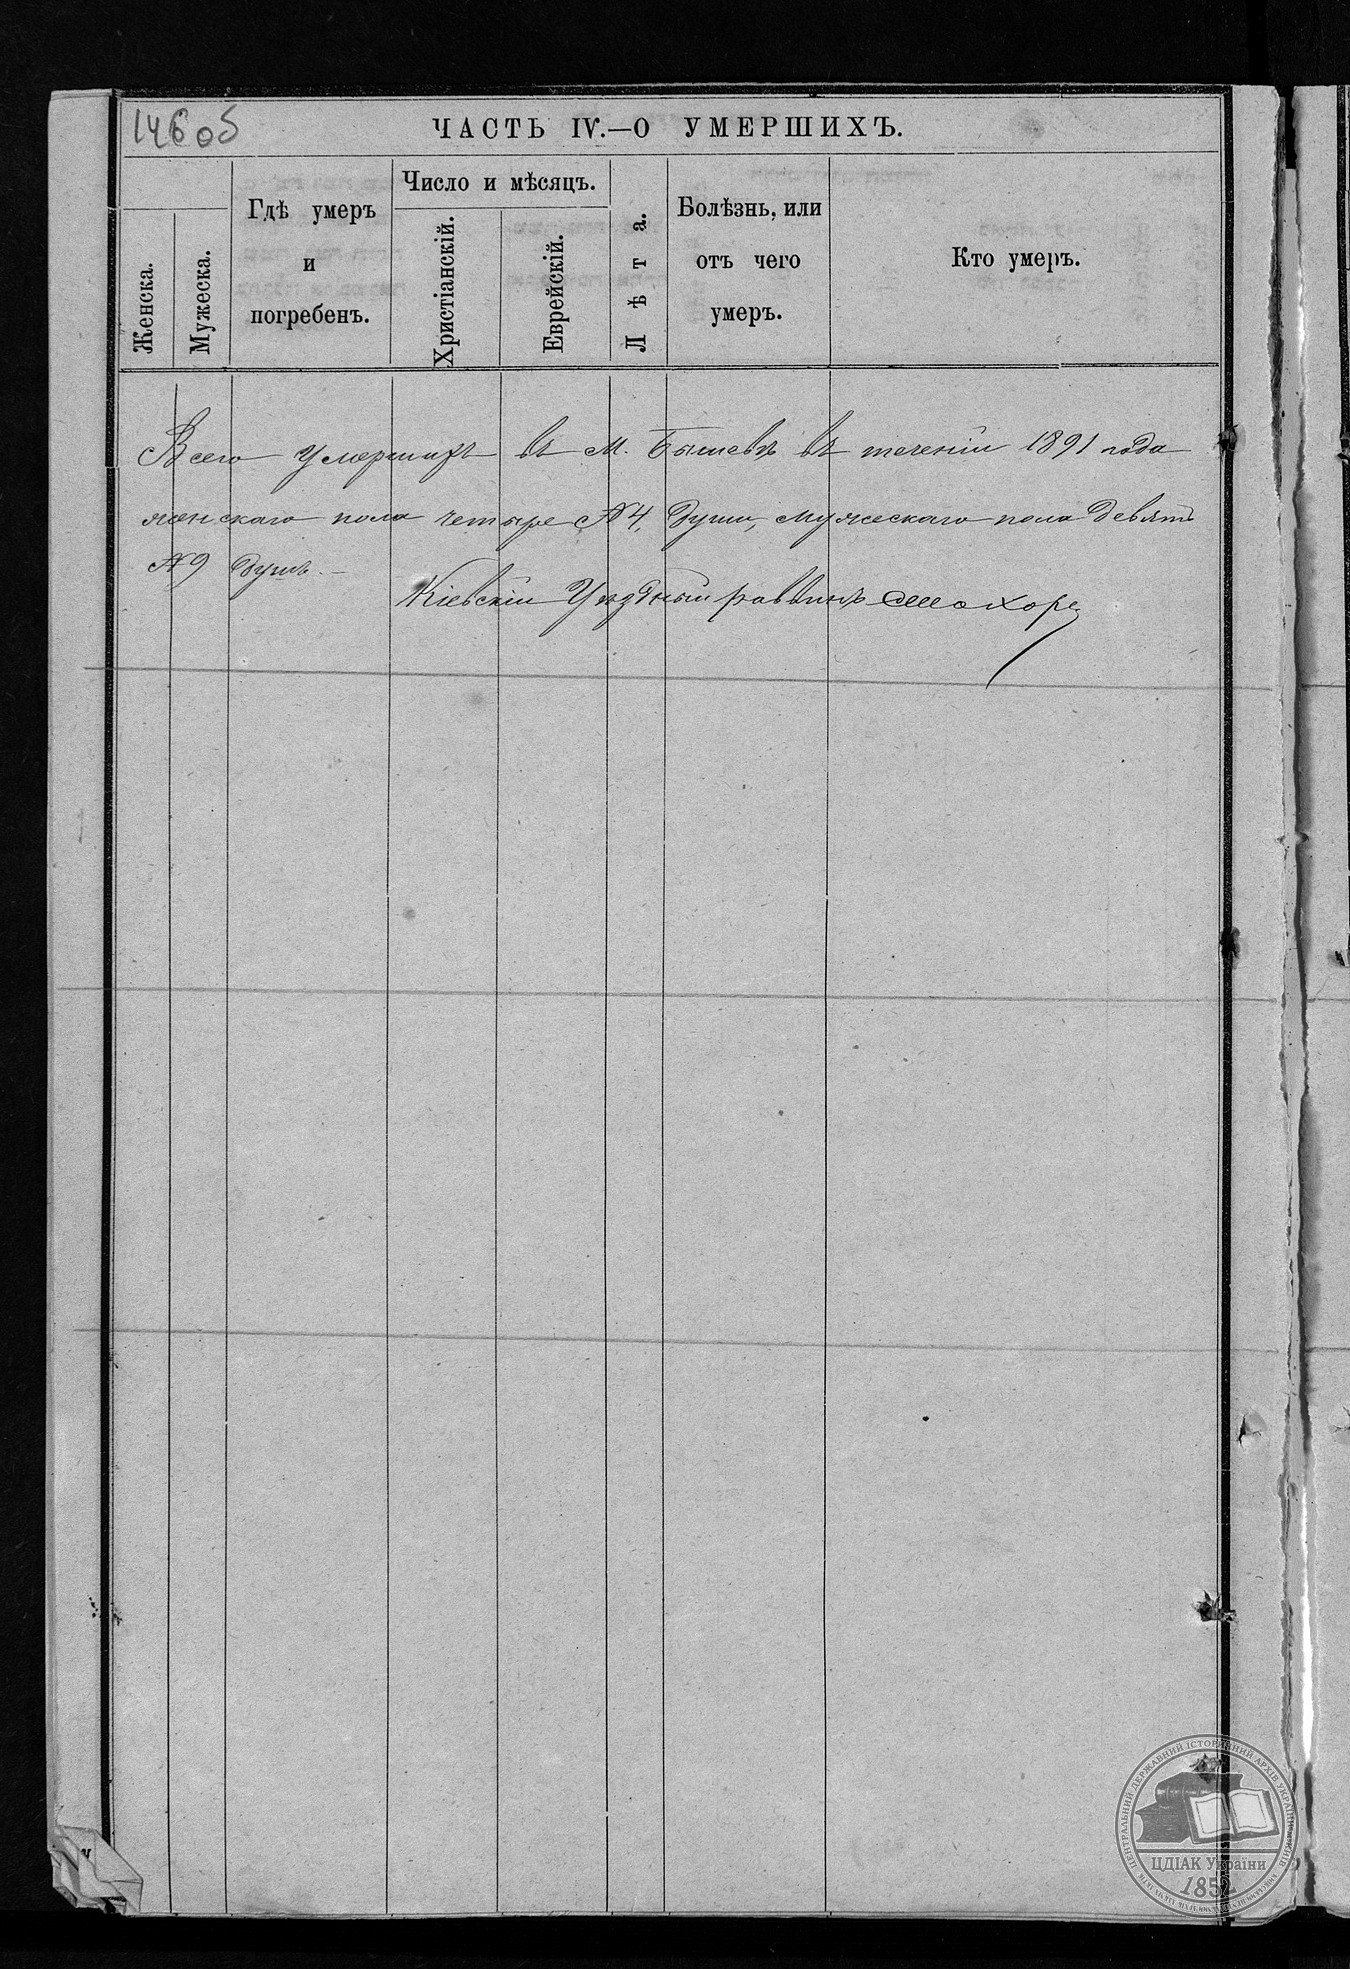 146 об
ЧАСТЬ IV.—О УМЕРШИХЪ.
Женска.
Мужеска.
Гдѣ умеръ
и
погребенъ.
Число и мѣсяцъ.
Христіанскій.
Еврейскій.
Лѣта.
Болѣзнь, или
отъ чего
умеръ.
Кто умеръ.
Всего умершихъ въ М. Бышевѣ въ теченіи 1891 года
женскаго пола четыре № 4, души, мужескаго пола девять
№ 9 душъ.—
Кіевскій Уѣздный раввинъ
ЦЕНТРАЛЬНИЙ ДЕРЖАВНИЙ ІСТОРИЧНИЙ АРХІВ УКРАЇНИ
ЦДІАК України
1852